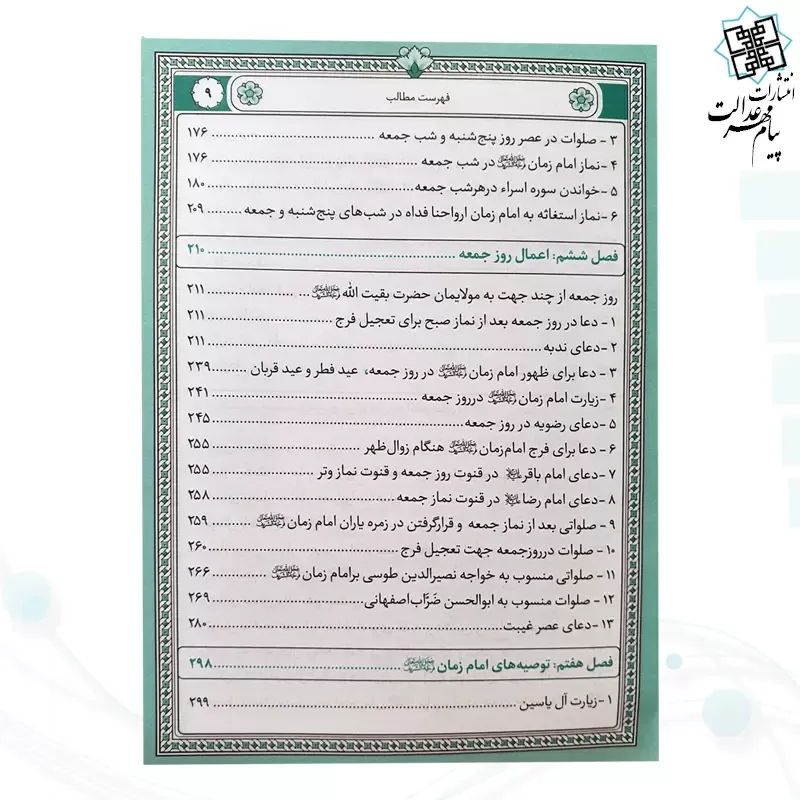 انتشارات
پیام مهر عدالت
فهرست مطالب
۹
۳ - صلوات در عصر روز پنج‌شنبه و شب جمعه ........ ۱۷۶
۴ - نماز امام زمان در شب جمعه ........ ۱۷۶
۵ - خواندن سوره اسراء در هر شب جمعه ........ ۱۸۰
۶ - نماز استغاثه به امام زمان ارواحنا فداه در شب‌های پنج‌شنبه و جمعه ........ ۲۰۹
فصل ششم: اعمال روز جمعه ........ ۲۱۰
روز جمعه از چند جهت به مولایمان حضرت بقیت الله ........ ۲۱۱
۱ - دعا در روز جمعه بعد از نماز صبح برای تعجیل فرج ........ ۲۱۱
۲ - دعای ندبه ........ ۲۱۱
۳ - دعا برای ظهور امام زمان در روز جمعه، عید فطر و عید قربان ........ ۲۳۹
۴ - زیارت امام زمان درروز جمعه ........ ۲۴۱
۵ - دعای رضویه در روز جمعه ........ ۲۴۵
۶ - دعا برای فرج امام‌زمان هنگام زوال‌ظهر ........ ۲۵۵
۷ - دعای امام باقر در قنوت روز جمعه و قنوت نماز وتر ........ ۲۵۵
۸ - دعای امام رضا در قنوت نماز جمعه ........ ۲۵۸
۹ - صلواتی بعد از نماز جمعه و قرارگرفتن در زمره یاران امام زمان ........ ۲۵۹
۱۰ - صلوات درروزجمعه جهت تعجیل فرج ........ ۲۶۰
۱۱ - صلواتی منسوب به خواجه نصیرالدین طوسی برامام زمان ........ ۲۶۶
۱۲ - صلوات منسوب به ابوالحسن ضَرّاب‌اصفهانی ........ ۲۶۹
۱۳ - دعای عصر غیبت ........ ۲۸۰
فصل هفتم: توصیه‌های امام زمان ........ ۲۹۸
۱ - زیارت آل یاسین ........ ۲۹۹